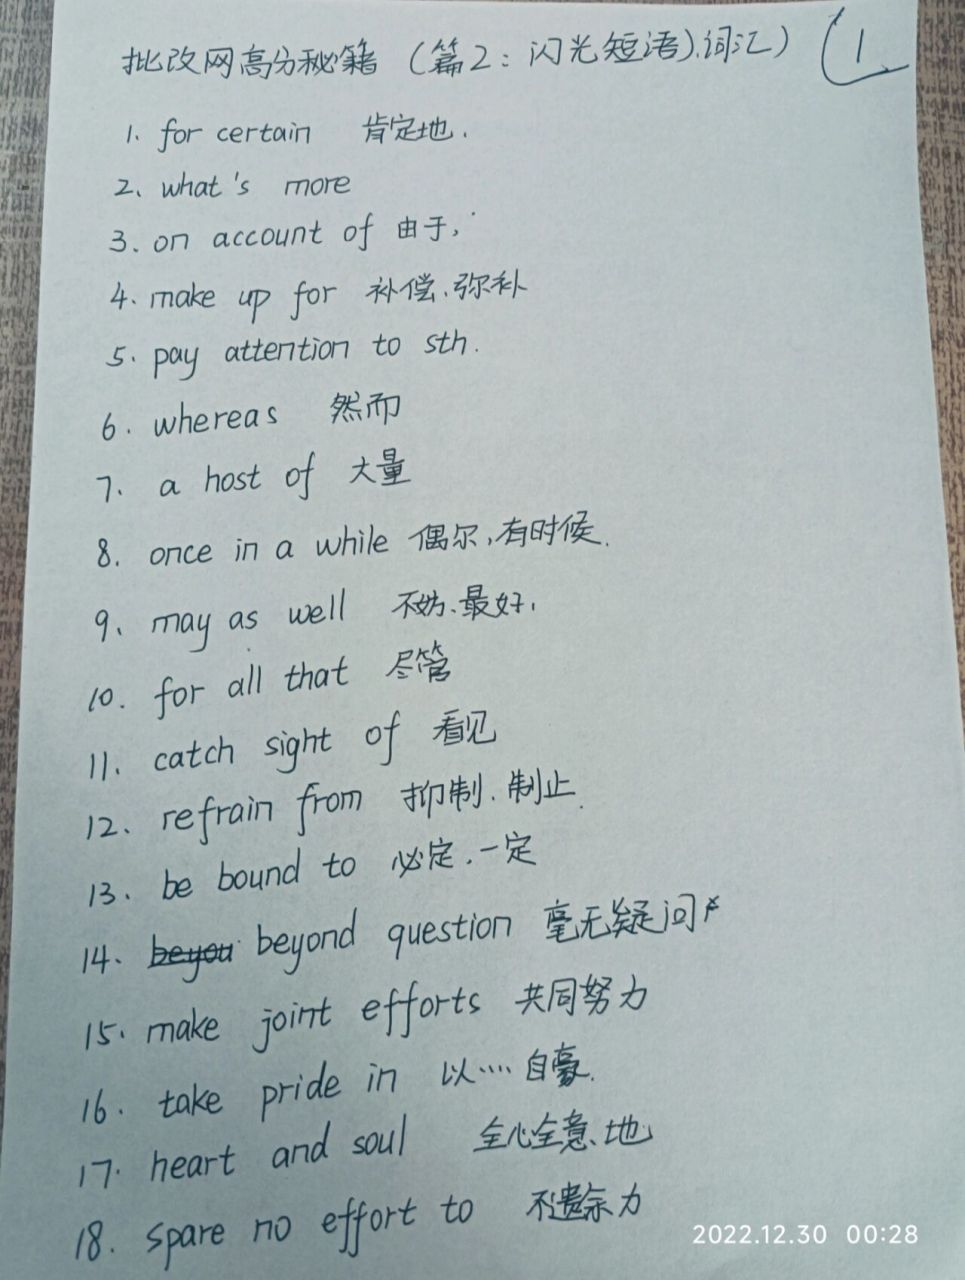 批改网高分秘籍（篇2：闪光短语、词汇） 1
1. for certain 肯定地.
2、what's more
3. on account of 由于,
4. make up for 补偿、弥补
5. pay attention to sth.
6. whereas 然而
7. a host of 大量
8. once in a while 偶尔,有时候.
9、may as well 不妨、最好,
10. for all that 尽管
11. catch sight of 看见
12. refrain from 抑制、制止.
13. be bound to 必定、一定
14、beyou beyond question 毫无疑问
15、make joint efforts 共同努力
16. take pride in 以.... 自豪.
17. heart and soul 全心全意、地
18. spare no effort to 不遗余力
2022.12.30 00:28